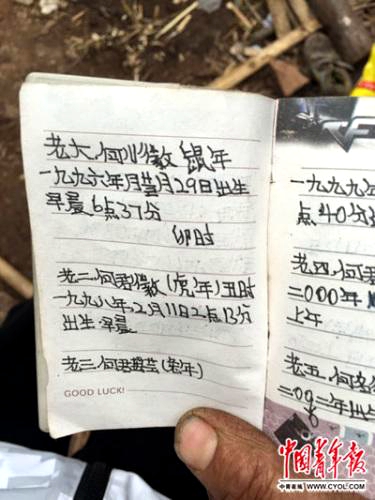 老大.何川徽 鼠年
一九九六年月 月29日出生
早晨6点37分
卯时
老二.何君徽(虎年)丑时
一九九八年2月11日2点13分
出生.早晨
老三.何君 (兔年)
GOOD LUCK!
一九九九年
点40分
老四.何君
二000年
上午
老五.何
二0 二年出
中国青年报
中青在线 WWW.CYOL.COM